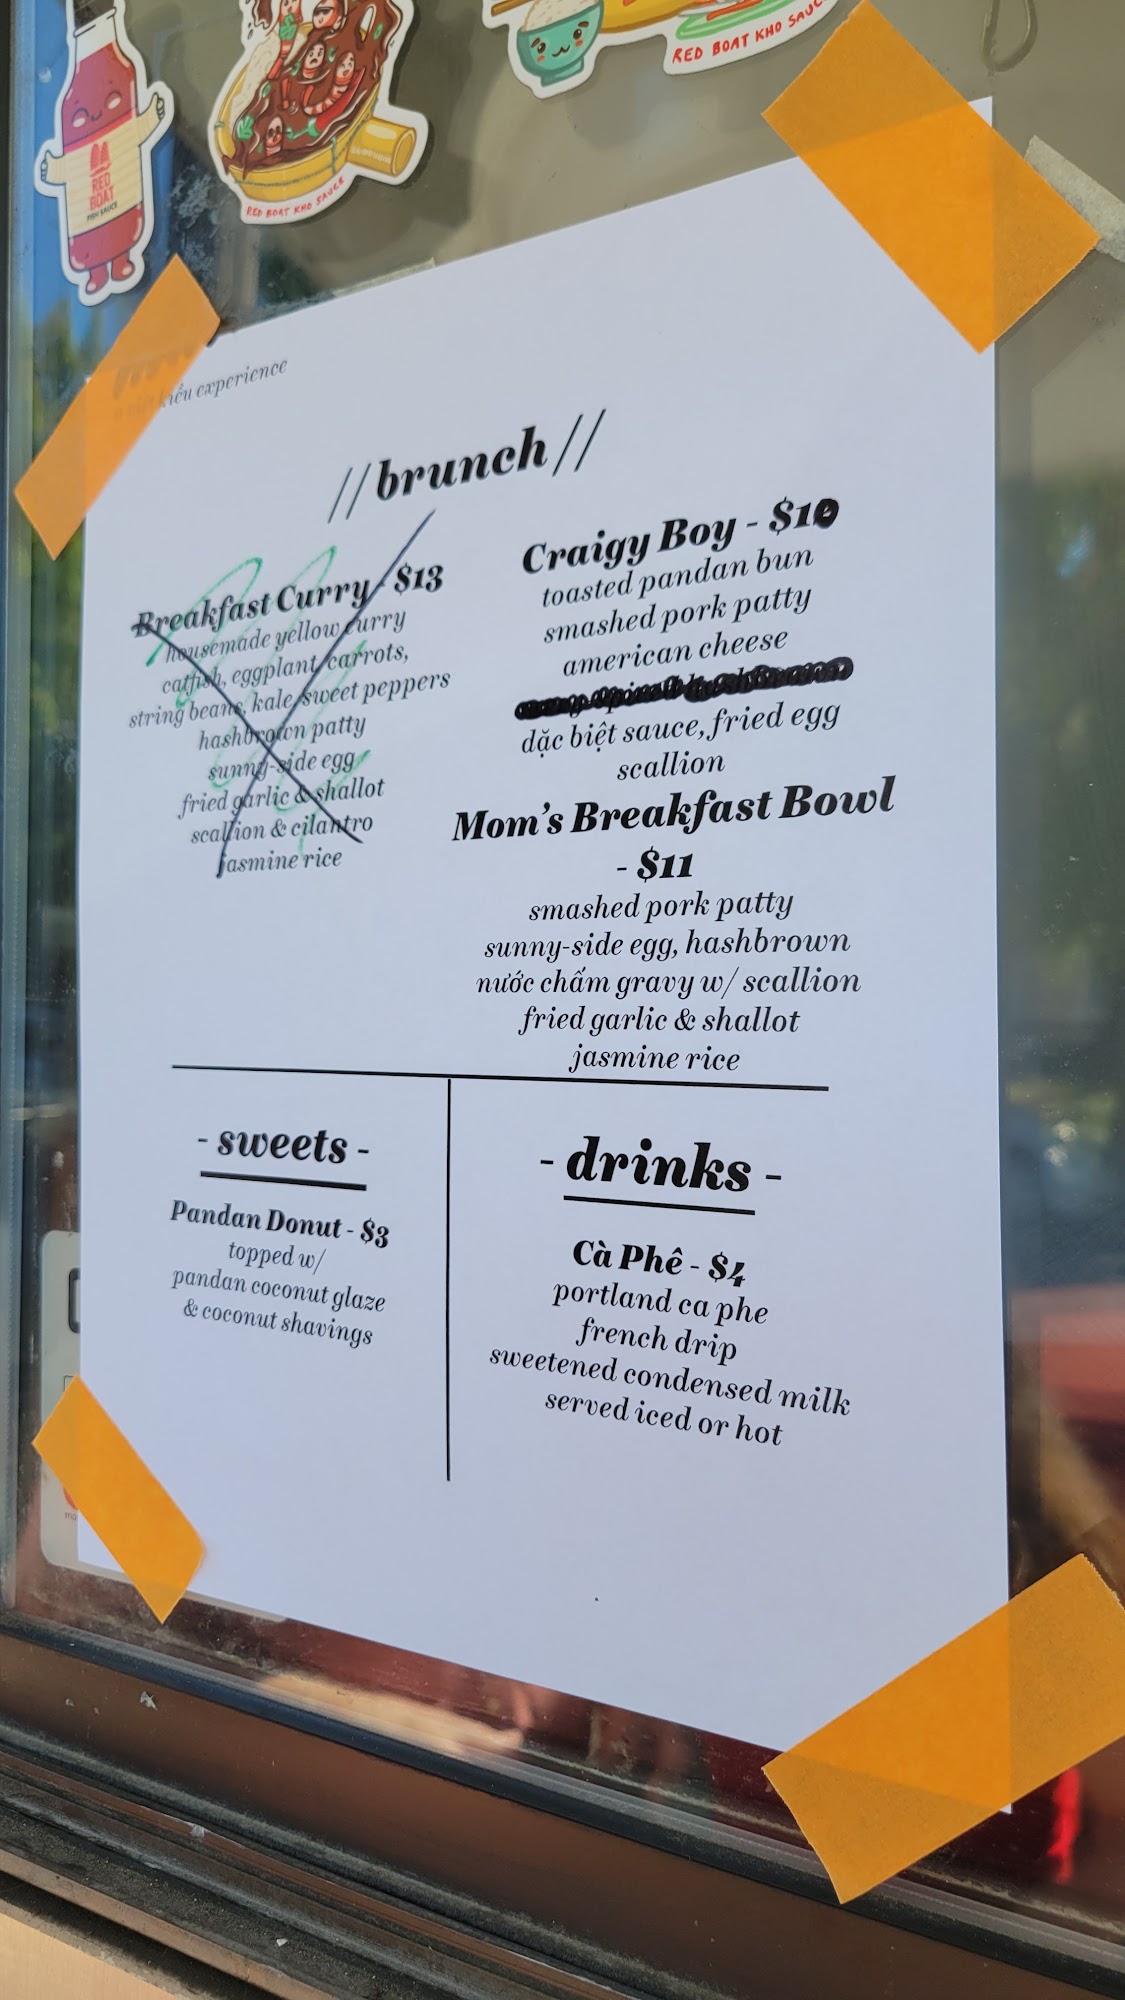 RED BOAT
FISH SAUCE
RED BOAT KHO SAUCE
RED BOAT KHO SAUCE
kiều experience
//brunch//
Breakfast Curry - $13
housemade yellow curry
catfish, eggplant, carrots,
string beans, kale, sweet peppers
hashbrown patty
sunny-side egg
fried garlic & shallot
scallion & cilantro
jasmine rice
Craigy Boy - $10
toasted pandan bun
smashed pork patty
american cheese
dặc biệt sauce, fried egg
scallion
Mom's Breakfast Bowl
- $11
smashed pork patty
sunny-side egg, hashbrown
nước chấm gravy w/ scallion
fried garlic & shallot
jasmine rice
- sweets -
Pandan Donut - $3
topped w/
pandan coconut glaze
& coconut shavings
- drinks -
Cà Phê - $4
portland ca phe
french drip
sweetened condensed milk
served iced or hot